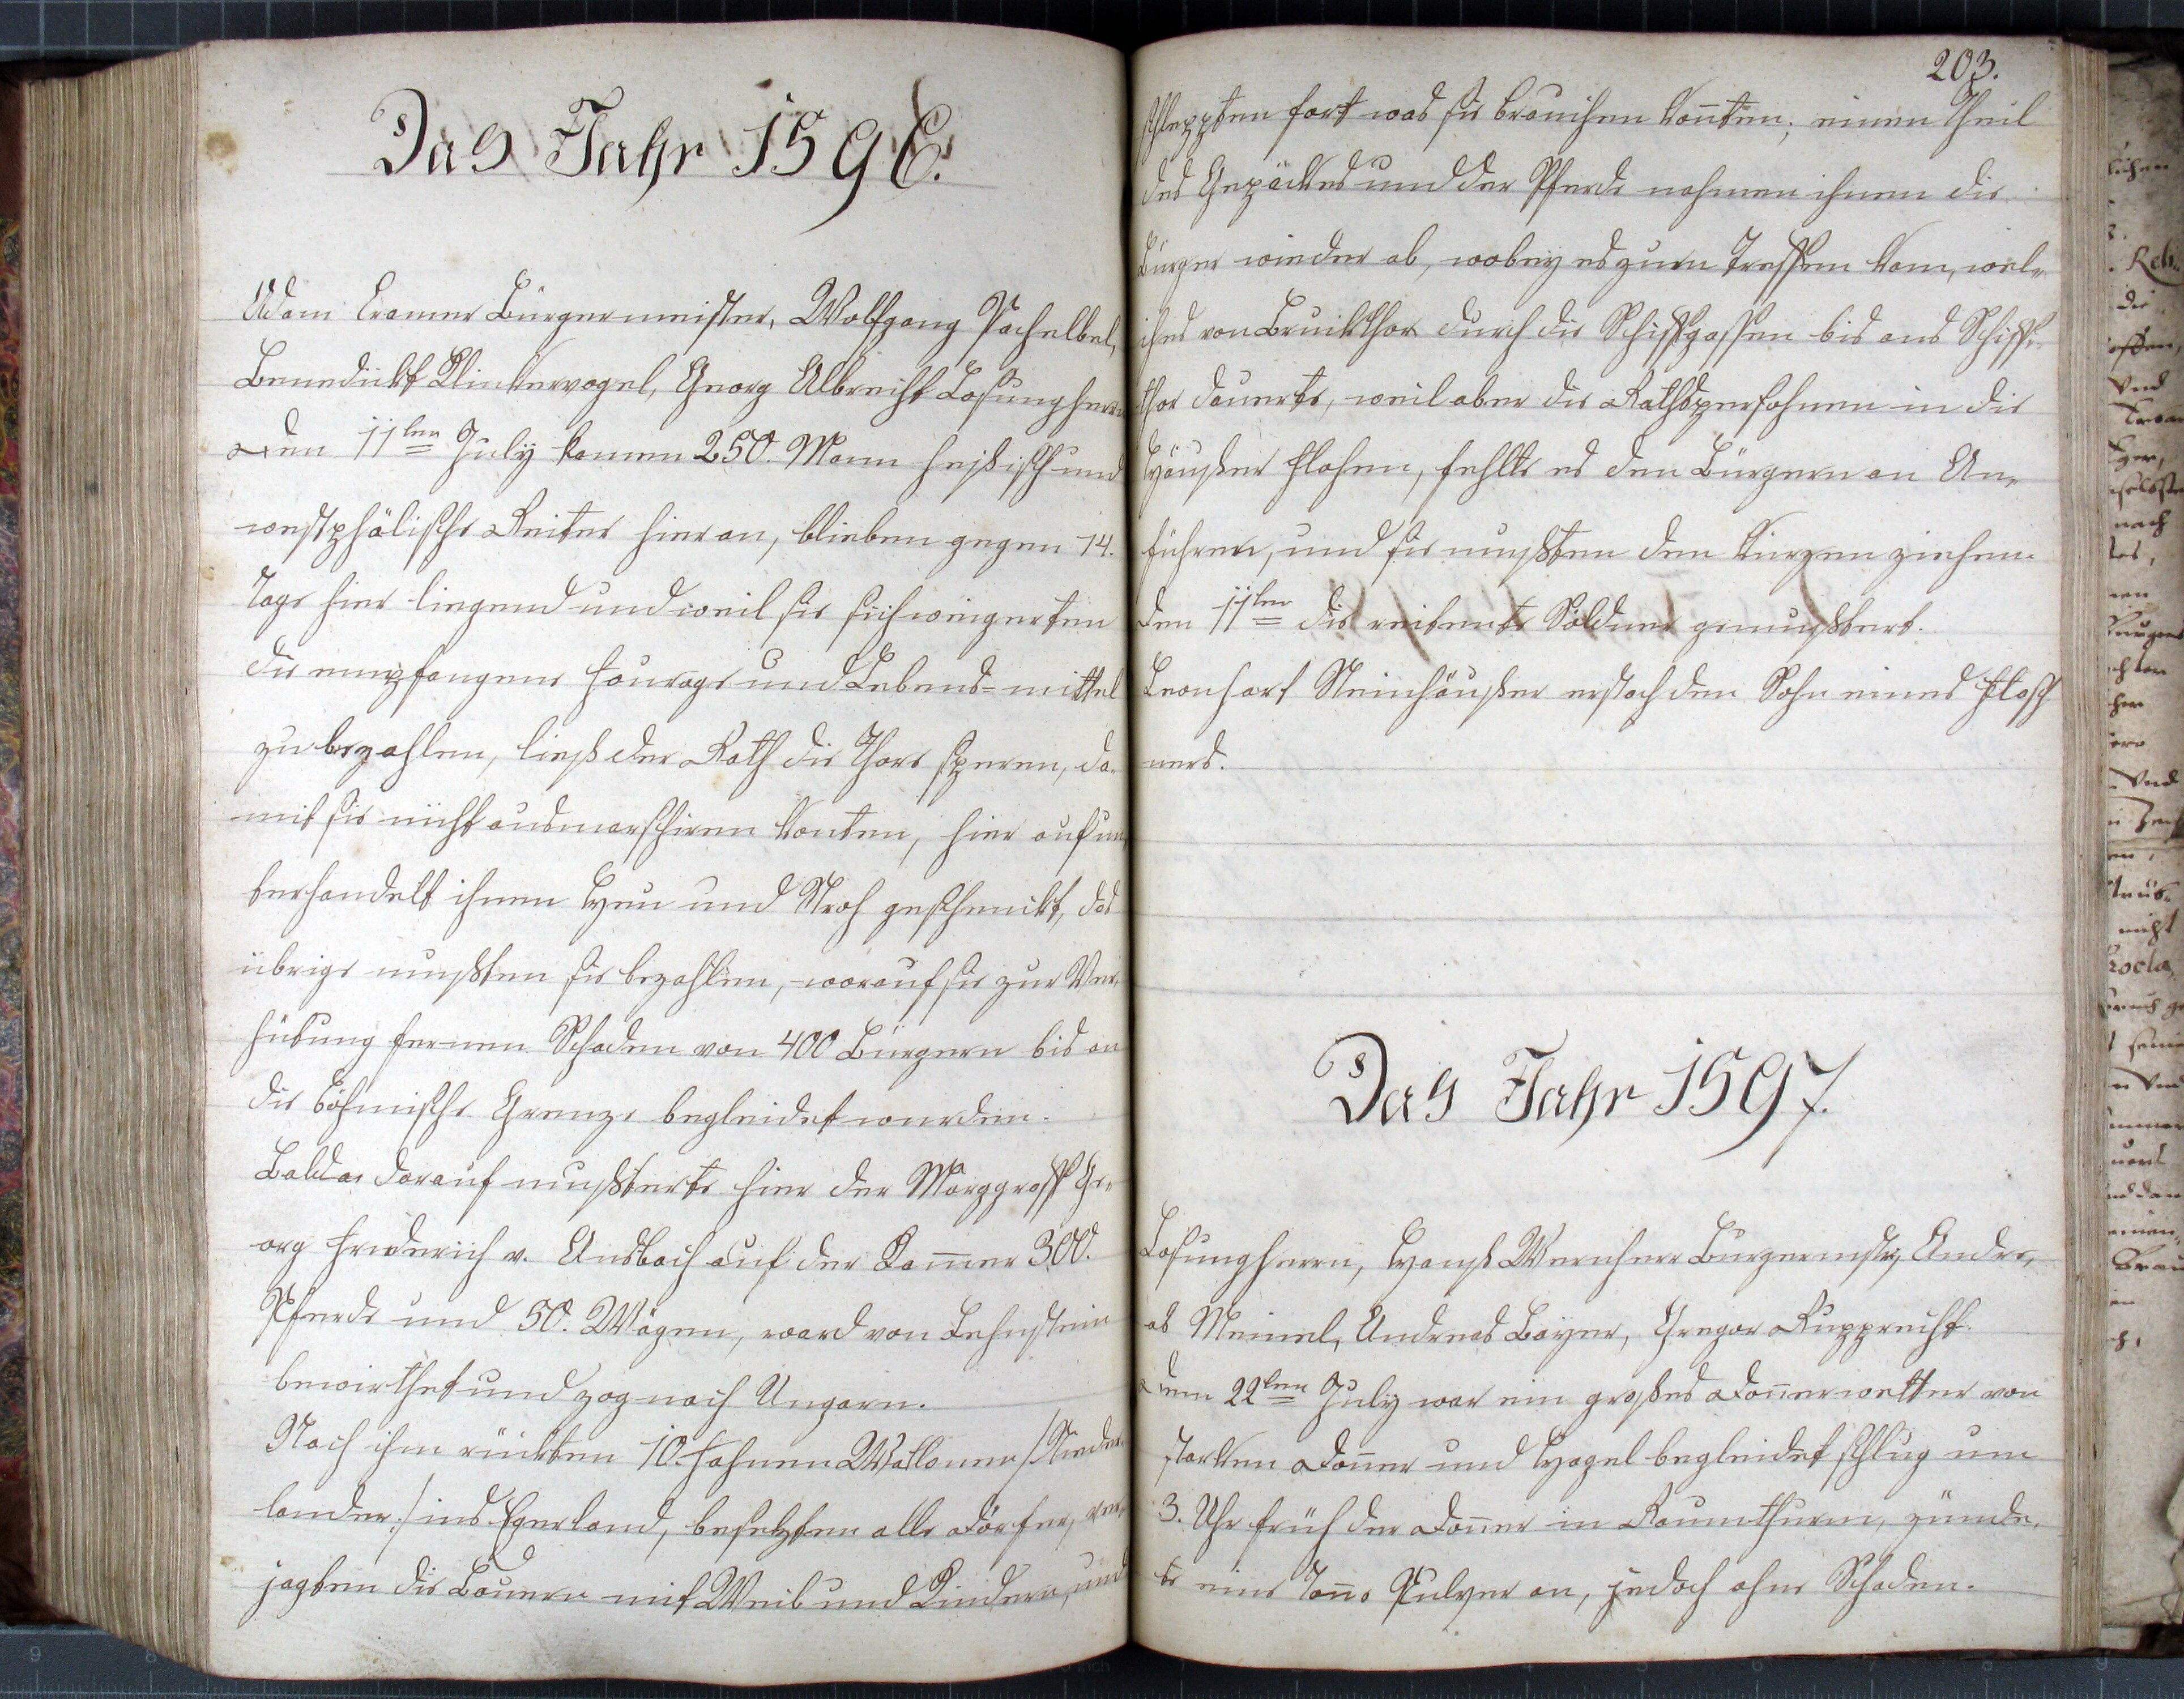 Das Jahr 1596.
Adam Cramer Bürgermeister, Wolfgang Pachelbel,
Benedickt Klinkervogel, Georg Albrecht Losungherrn
Den 11ten July kamen 250. Mann heßisch und
westphälische Reiter hier an, blieben gegen 14.
Tage hier liegend und weil sie sich weigerten
die empfangene Fourage und Lebens-mittel
zu bezahlen, ließ der Rath die Thore speren, da-
mit sie nicht ausmarschiren konten, hier auf un-
terhandelt ihnen Heu und Stroh geschenckt, das
übrige mußten sie bezahlen, worauf sie zur Ver-
hütung fernen Schaden von 400 Bürgern bis an
die böhmische Grenze begleidet wurden.
darauf mußterte hier der Marggraff Ge-
org Friederich v. Ansbach auf der Kam̅er 300.
Pferde und 50. Wägen, ward von Lehnstein
bewirthet und zog nach Ungarn.
Nach ihm rückten 10. Fahnen Wallonen /: Nieder-
lander :/ ins Egerland, besetzten alle Dörfer, ver-
jagten die Bauern mit Weib und Kindern, und
203.
schleppten fort was sie brauchen kon̅ten; einen Theil
des Gepäckes und der Pferde nahmen ihnen die
Bürger wieder ab, wobey es zum Treffen kam, wel-
ches von Bruckthor durch die Schiffgassen bis ans Schiff-
thor dauerte, weil aber die Rathspersohnen in die
Häußer flohen, fehlte es den Bürgern an An-
führern, und sie mußten den kürzen ziehen.
den 11ten die reitente Söldner gemußtert.
Leonhart Steinhäußer erstach den Sohn eines Flasch
ners.
Das Jahr 1597.
Losungherrn, Hanß Wernherr Burgermstr, Andre-
as Meinel, Andreas Bayer, Gregor Rupprecht.
Den 22ten July war ein großes Don̅erwetter von
starken Don̅er und Hagel begleidet schlug um
3. Uhr früh der Don̅er in Raumthurm, zünde-
te eine Ton̅e Pulver an, jedoch ohne Schaden.